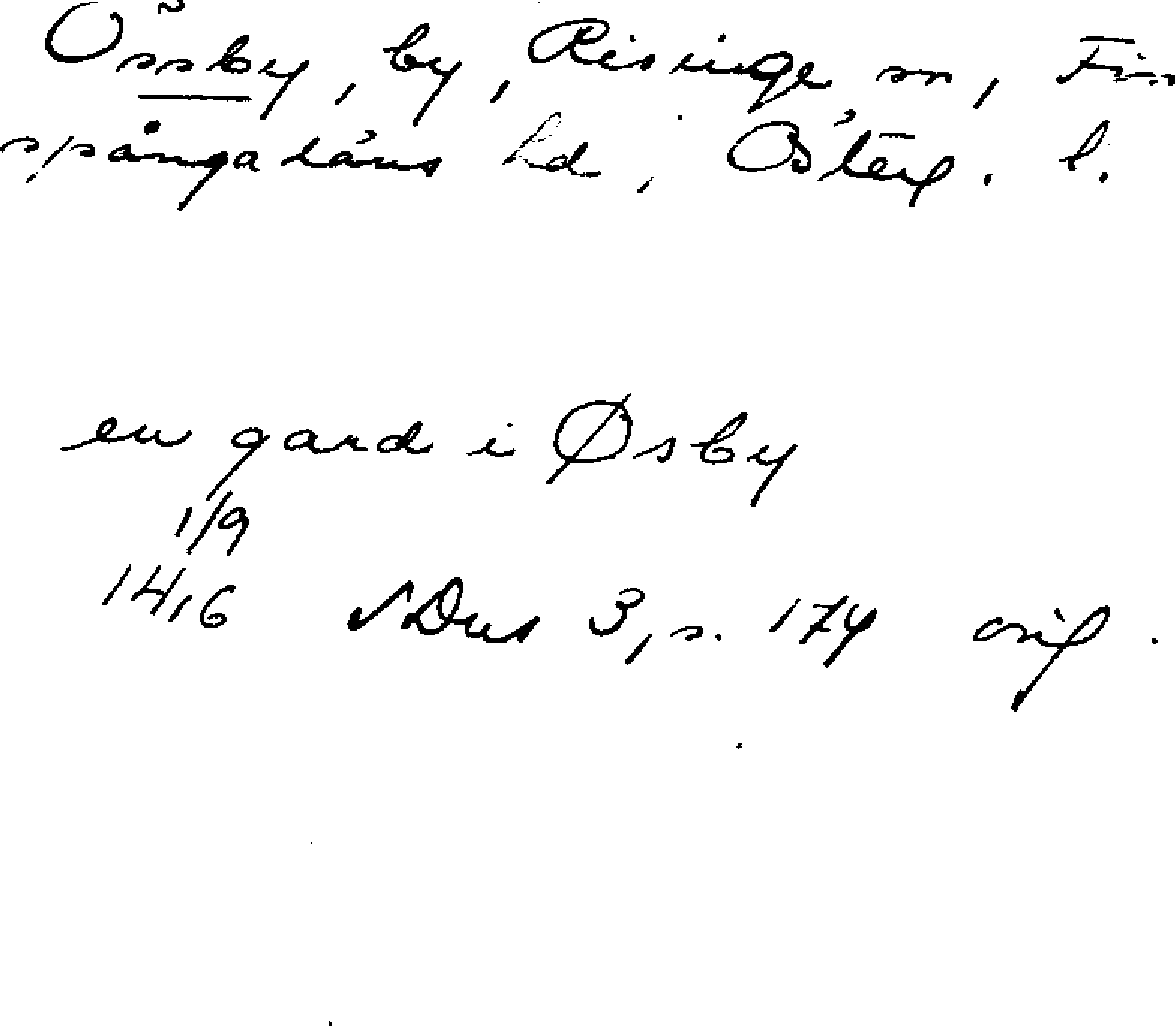 Össby, by, Risinge sn, Fin
spångaläns hd, Österg. l.
en gard i Øsby
1/9
1416 SDns 3, s. 174 orig.